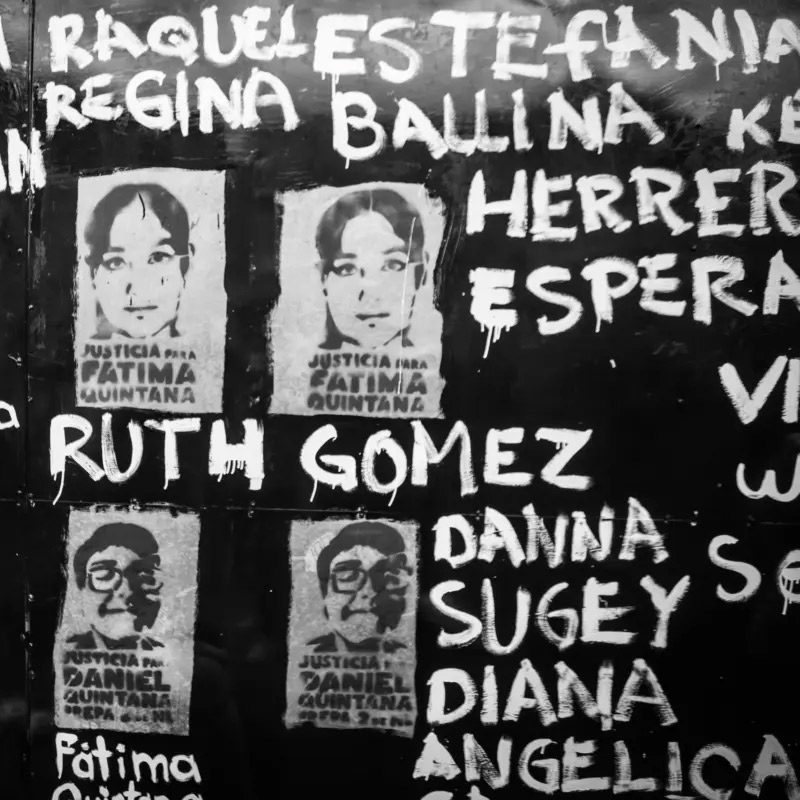 RAQUEL ESTEFANIA
REGINA BALLINA KE
AN
HERRER
ESPERA
JUSTICIA PARA
FATIMA
QUINTANA
JUSTICIA PARA
FATIMA
QUINTANA
VI
a
RUTH GOMEZ
W
DANNA
Se
SUGEY
JUSTICIA PARA
DANIEL
QUINTANA
JUSTICIA P
DANIEL
QUINTANA
DIANA
Fátima
ANGELICA
Quintana